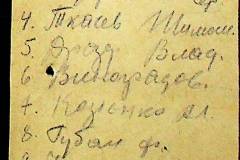 4. Ткасев Шимон.
5. Дрозд Влад.
6 Виноградов.
7. Козленко Ал.
8. Губам ф.